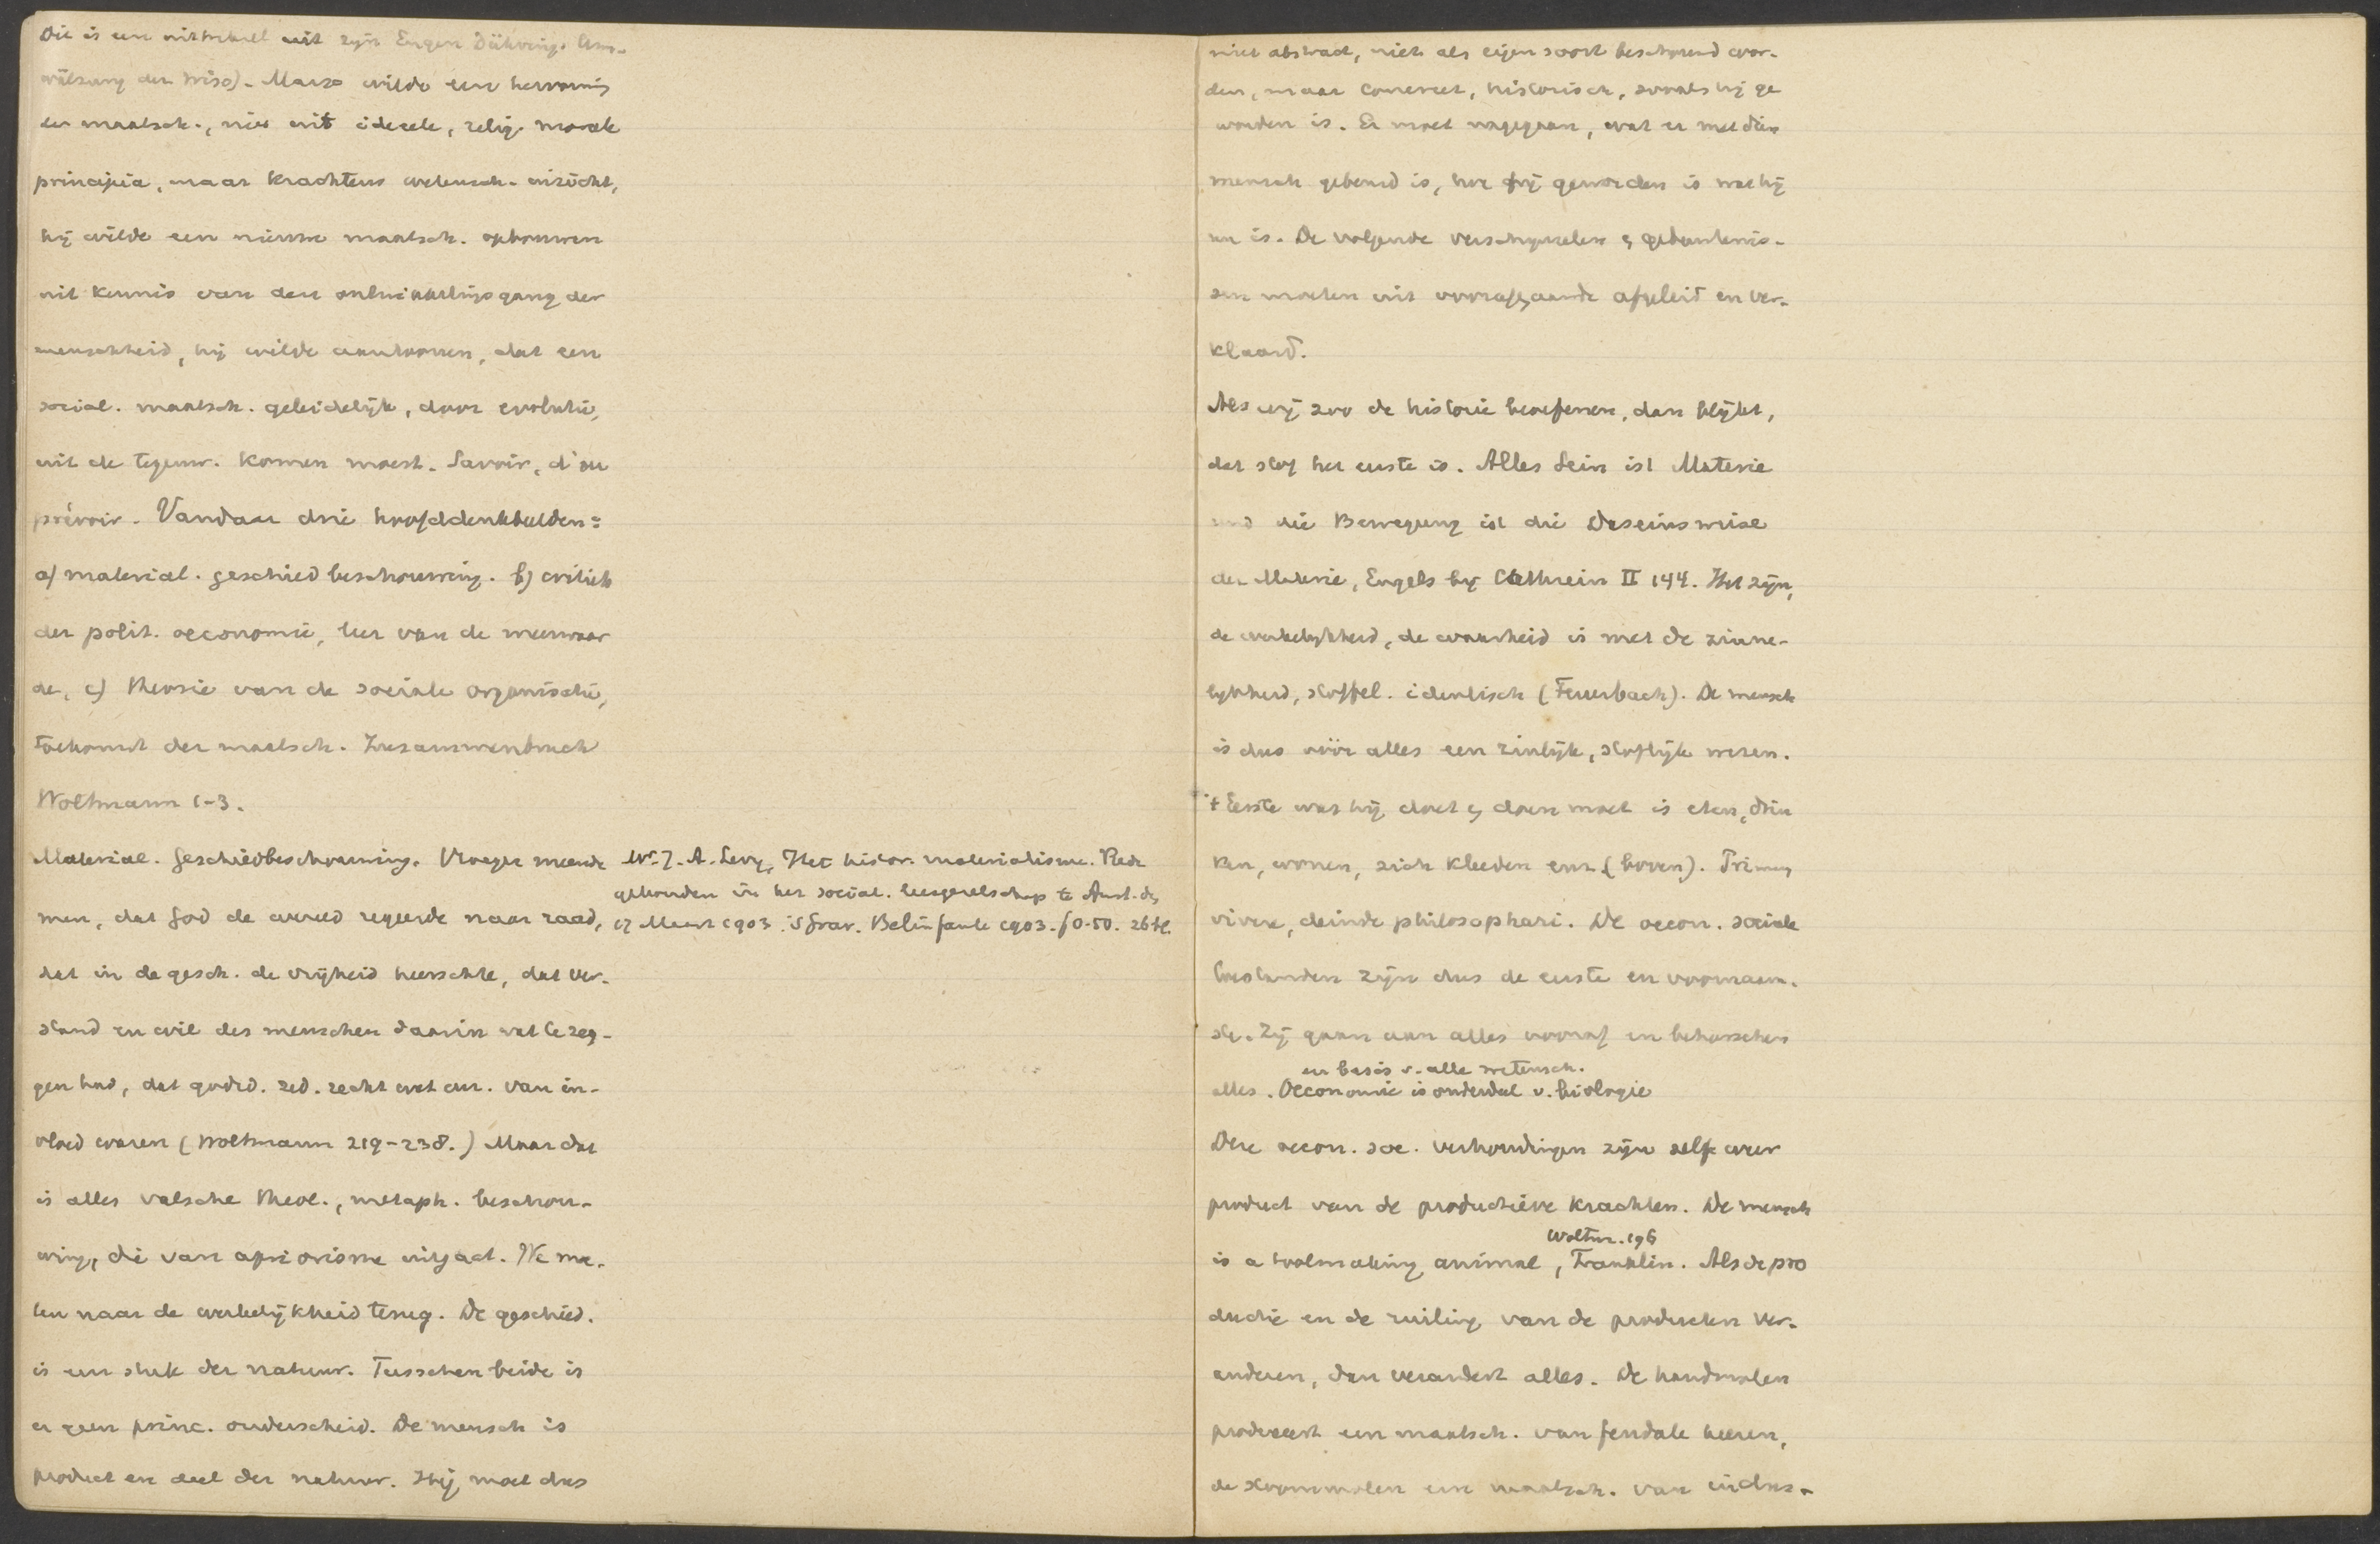 Die is een uittreksel uit zijn Eugen Dührings Um-
wälzung der Wiss). Marx wilde een hervorming
der maatsch., niet uit ideeele, relig. morele
principia, maar krachtens wetensch. inzicht,
hij wilde een nieuwe maatsch. opbouwen
uit kennis van den ontwikkelingsgang der
menschheid, hij wilde aantoonen, dat een
social. maatsch. geleidelijk, door evolutie,
uit de tegenw. komen moest. Savoir, d'ou
prévoir. Vandaar drie hoofddenkbeelden:
a) material. geschiedbeschouwing. b) critiek
der polit. oeconomie, leer van de meerwaar
de, c) theorie van de sociale organisatie,
toekomst der maatsch. Zusammenbruch
Woltmann 1-3.
Material. Geschiedbeschouwing. Vroeger meende
men, dat God de wereld regeerde naar raad,
dat in de gesch. de vrijheid heerschte, dat ver-
stand en wil des menschen daarin wat te zeg-
gen had, dat godsd. zed. recht wet enz. van in-
vloed waren (Woltmann 219-238.) Maar dat
is alles valsche theol., metaph. beschou-
wing, die van apriorisme uitgaat. We moe-
ten naar de werkelijkheid terug. De geschied.
is een stuk der natuur. Tusschen beide is
er geen princ. onderscheid. De mensch is
product en deel der natuur. Hij moet dus
Mr. J. A. Levy, Het histor. materialisme. Rede
gehouden in het social. leesgezelschap te Amst. den
17 Maart 1903. 's Grav. Belinfante 1903. f 0.50. 26 bl.
niet abstract, niet als eigen soort beschouwd wor-
den, maar concreet, historisch, zooals hij ge
worden is. Er moet nagegaan, wat er met dien
mensch gebeurd is, hoe hij geworden is wat hij
nu is. De volgende verschijnselen & gebeurtenis-
sen moeten uit voorafgaande afgeleid en ver-
klaard.
Als wij zoo de historie beoefenen, dan blijkt,
dat stof het eerste is. Alles Sein ist Materie
und die Bewegung ist die Daseinsweise
der Materie, Engels bij Cathrein II 144. Het zijn,
de werkelijkheid, de waarheid is met de zinne-
lijkheid, stoffel. identisch (Feuerbach). De mensch
is dus vóór alles een zinlijk, stoflijk wezen.
't Eerste wat hij doet & doen moet is eten, drin
ken, wonen, zich kleeden enz. (boven). Primum
vivere, deinde philosophari. De oecon. sociale
toestanden zijn dus de eerste en voornaam-
ste. Zij gaan aan alles vooraf en beheerschen
en basis v. alle wetensch.
alles. Oeconomie is onderdeel v. biologie
Deze oecon. soc. verhoudingen zijn zelf weer
product van de productieve krachten. De mensch
Woltm. 196
is a toolmaking animal, Franklin. Als de pro
ductie en de ruiling van de producten ver-
anderen, dan verandert alles. De handmolen
produceert een maatsch. van feudale heeren,
de stoommolen een maatsch. van indus-